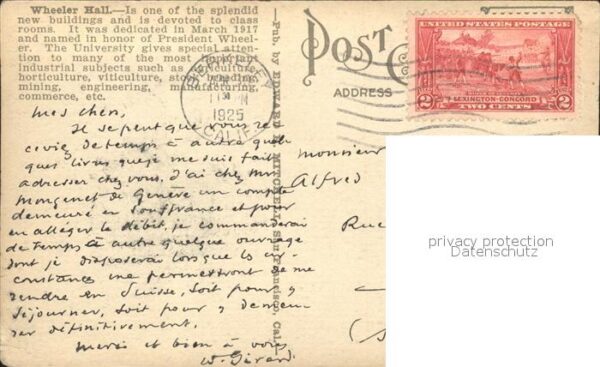 Wheeler Hall.—Is one of the splendid
new buildings and is devoted to class
rooms. It was dedicated in March 1917
and named in honor of President Wheel-
er. The University gives special atten-
tion to many of the most important
Industrial subjects such as agriculture,
horticulture, viticulture, stock breeding,
mining, engineering, manufacturing,
commerce, etc.
Mes chers,
Il se peut que vous re-
ceviez de temps à autre quel-
ques livres que je me suis fait
adresser chez vous. J'ai chez Mr
de Genève un compte
demeuré en souffrance et pour
en alléger le débit, je commanderai
de temps à autre quelque ouvrage
dont je disposerai lorsque les cir-
constances me permettront de me
rendre en Suisse, soit pour y
séjourner, soit pour y demeu-
rer définitivement.
Merci et bien à vous
W. Girard
—Pub. by Edward H. Mitchell, San Francisco, Cal.—
POST C
ADDRESS
BERKELEY
1925
CALIF.
UNITED STATES POSTAGE
LEXINGTON-CONCORD
2 TWO CENTS 2
Monsieur
Alfred
Rue
(S
privacy protection
Datenschutz